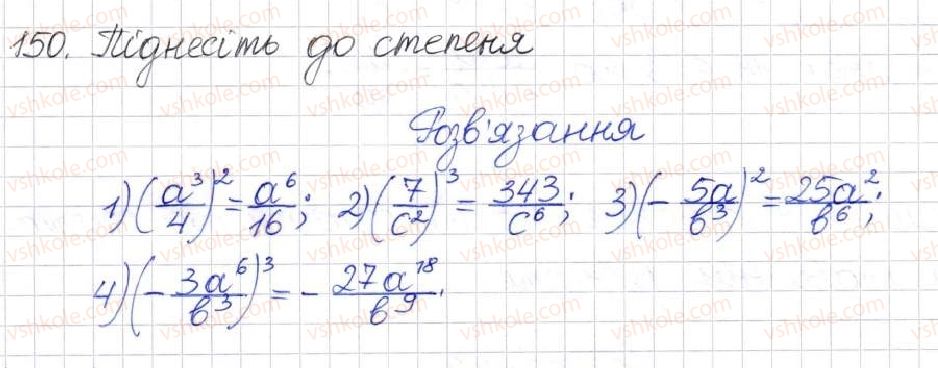 150. Піднесіть до степеня
Розв'язання
1) (a³/4)² = a⁶/16; 2) (7/c²)³ = 343/c⁶; 3) (- 5a/b³)² = 25a²/b⁶;
4) (- 3a⁶/b³)³ = - 27a¹⁸/b⁹.